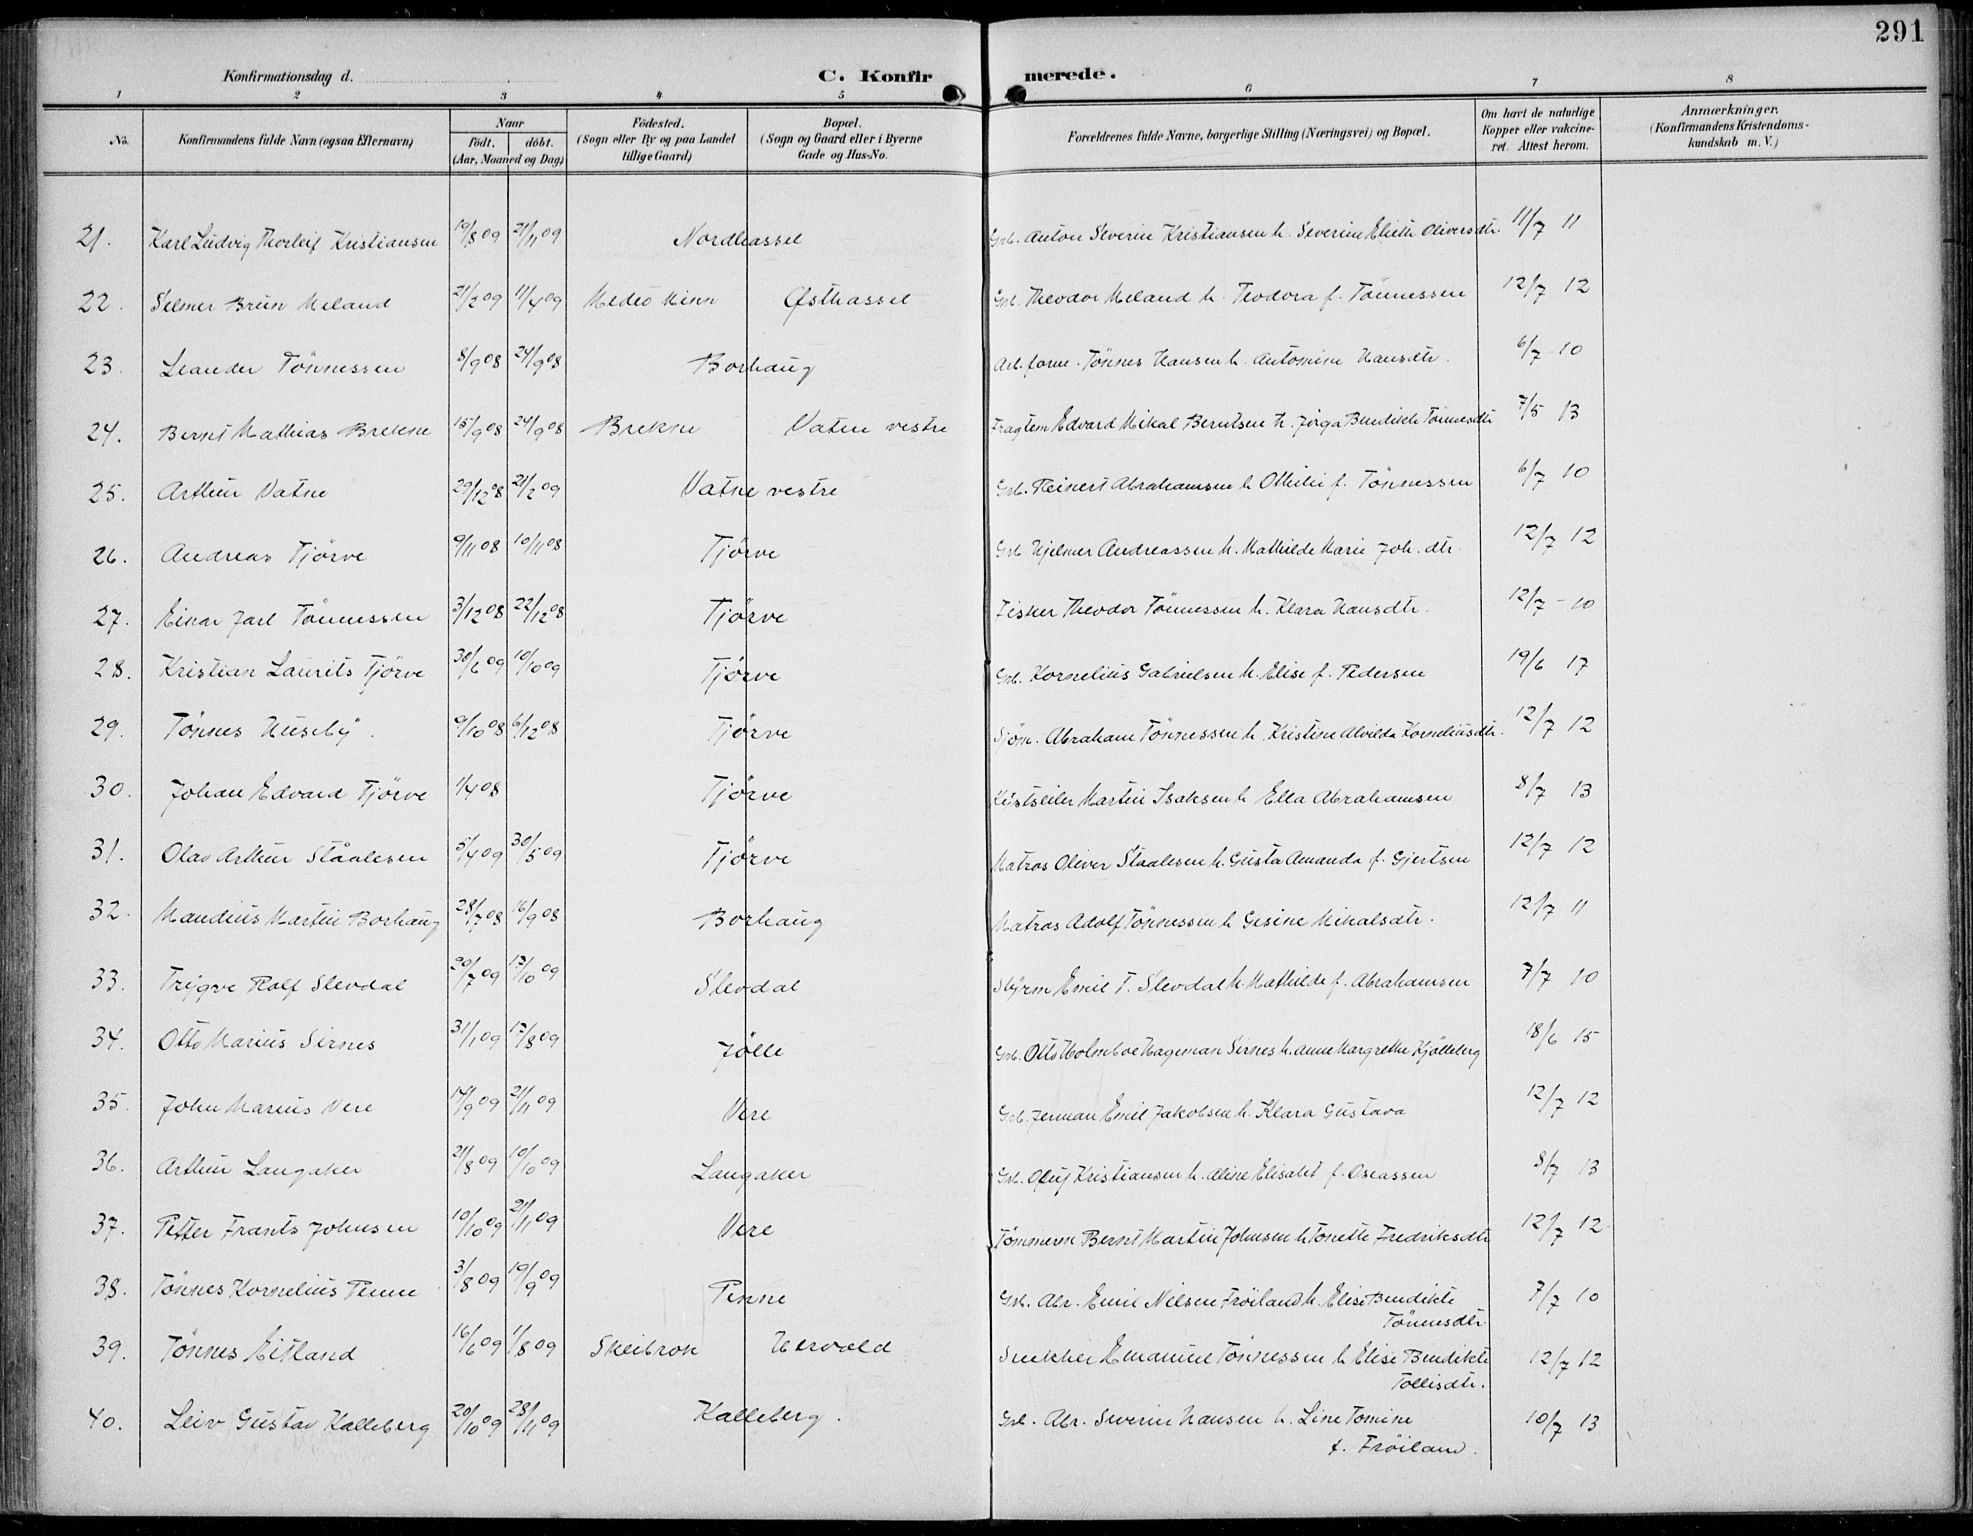 291
Konfirmationsdag d. C. Konfirmerede.
1 2 3 4 5 6 7 8
No. Konfirmandens fulde Navn (ogsaa Efternavn) Naar født. døbt. (Aar, Maaned og Dag) Födested. (Sogn eller By og paa Landet tillige Gaard) Bopæl. (Sogn og Gaard eller i Byerne Gade og Hus-No. Forældrenes fulde Navne, borgerlige Stilling (Næringsvei) og Bopæl. Om havt de naturlige Kopper eller vakcineret. Attest herom. Anmærkninger. (Konfirmandens Kristendomskundskab m. V.)
21. Karl Ludvig Thorleif Kristiansen 19/8 09 21/11 09 Nordhassel Grb. Anton Severin Kristiansen h. Severine Elieth Oliversdtr. 11/7 11
22. Selmer Brun Meland 21/2 09 11/4 09 Østhassel Grb. Theodor Meland h. Teodora f. Tönnessen 12/7 12
23. Leander Tönnessen 8/9 08 24/9 08 Borhaug Arb. form. Tönnes Hansen h. Antomine Hansdtr. 6/7 - 10
24. Bernt Mathias Brekne 15/9 08 24/9 08 Brekne Vatne vestre Fragtem Edvard Mikal Berntsen h. Jörga Bendikte Tönnesdtr 7/5 13
25. Arthur Vatne 29/12 08 21/2 09 Vatne vestre Grb. Reinert Abrahamsen h. Othilie f. Tönnessen 6/7 10
26. Andreas Tjörve 9/11 08 10/11 08 Tjörve Grb. Hjelmer Andreassen h. Mathilde Marie Joh. dtr. 12/7 12
27. Einar Jarl Tönnessen 3/12 08 22/12 08 Tjörve Fisker Theodor Tönnessen h. Klara Hansdtr. 12/7 - 10
28. Kristian Laurits Tjörve 30/6 09 10/10 09 Tjörve Grb. Kornelius Gabrielsen h. Elise f. Pedersen 19/6 17
29. Tönnes Huseby. 9/10 08 6/12 08 Tjörve Sjöm. Abraham Tönnessen h. Kristine Alvilde Korneliusdtr. 12/7 12
30. Johan Edvard Tjörve 1/4 08 Tjörve Kystseiler Martin Isaksen h. Ella Abrahamsen 8/7 13
31. Olav Arthur Stäalesen 5/4 09 30/5 09 Tjörve Matros Oliver Staalesen h. Gusta Amanda f. Gjertsen 12/7 12
32. Mandius Martin Borhaug 28/7 08 16/9 08 Borhaug Matros Adolf Tönnessen h. Gesine Mikalsdtr. 12/7 11
33. Trygve Rolf Slevdal 20/7 09 17/10 09 Slevdal Styrm Emil T. Slevdal h. Mathilde f. Abrahamsen 7/7 10
34. Otto Marius Sirnes 31/1 09 17/8 09 Jölle Grb. Otto Holmboe Hageman Sirnes h. Anne Margrethe Kjölleberg 18/6 15
35. John Marius Vere 14/9 09 21/11 09 Vere Grb. Jerman Emil Jakobsen h. Klara Gustava 12/7 12
36. Arthur Langaker 21/8 09 10/10 09 Langaker Grb. Oluf Kristiansen h. Aline Elisabet f. Oseassen 8/7 13
37. Petter Frants Johnsen 10/10 09 21/11 09 Vere Tömmerm Bernt Martin Johnsen h. Tonette Fredriksdtr 12/7 12
38. Tönnes Kornelius Penne 3/8 09 19/9 09 Penne Grb. Abr. Emil Nilsen Fröiland h. Elise Bendikte 7/7 10
Tönnesdtr.
39. Tönnes Eitland 16/6 09 1/8 09 Skeibrok Hervold Snekker Emanuel Tönnessen h. Elise Bendikte 12/7 12
Tollisdtr.
40. Leiv Gustav Kalleberg 20/10 09 28/11 09 Kalleberg. Grb. Abr. Severin Hansen h. Line Tomine 10/7 13
f. Fröiland.